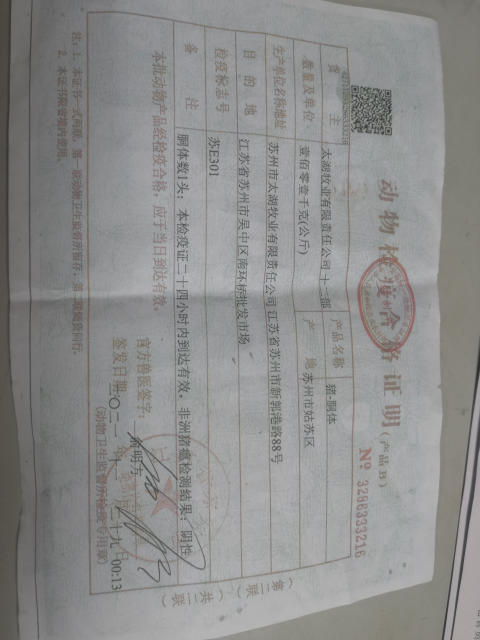 动物检疫合格证明(产品B)
№ 3286333216
货主 太湖牧业有限责任公司 十二部 产品名称 猪-胴体
数量及单位 壹佰零壹千克(公斤) 产地 苏州市姑苏区
生产单位名称地址 苏州市太湖牧业有限责任公司 江苏省苏州市新郭港路88号
目的地 江苏省苏州市吴中区南环桥批发市场
检疫标志号 苏E301
备注 胴体数1头; 本检疫证二十四小时内到达有效。非洲猪瘟检测结果: 阴性
本批动物产品经检疫合格,应于当日到达有效。
官方兽医签字:
签发日期: 二〇二一年
十九 00:13
(动物卫生监督所检疫专用章)
注: 1、本证书一式两联,第一联动物卫生监督所留存,第二联随货同行。
2、本证书限省境内使用。
(第二联 共二联)